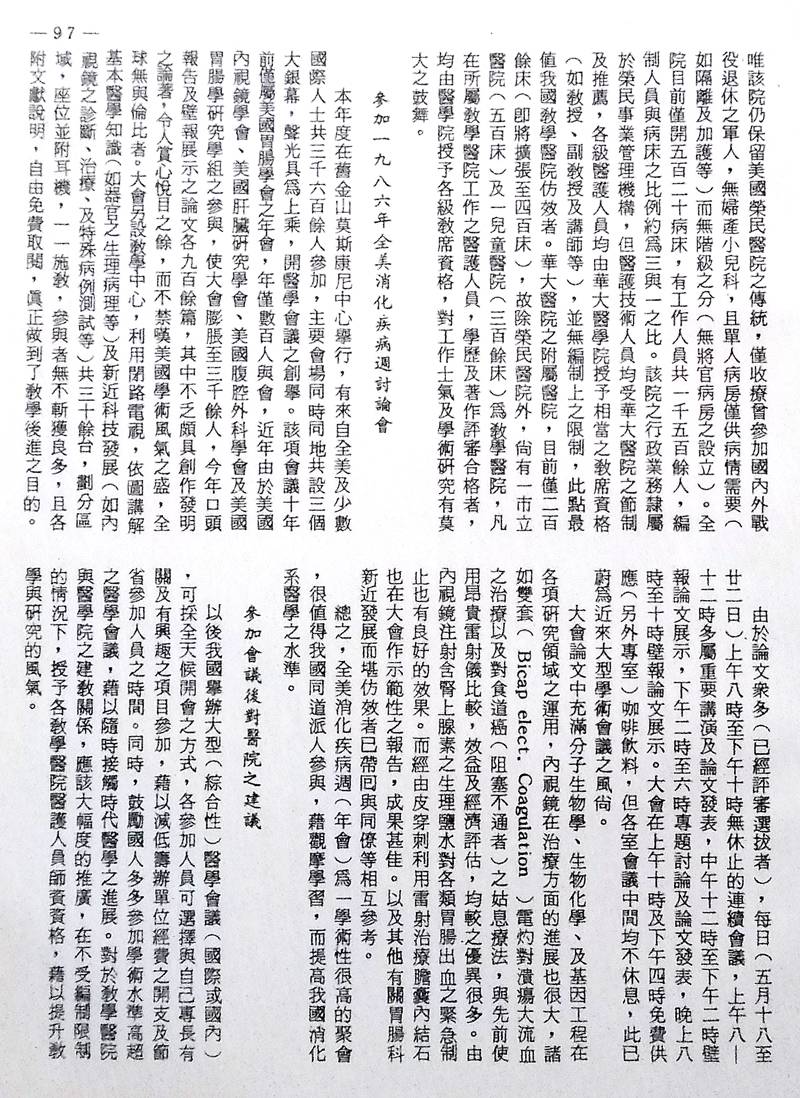 —97—
唯該院仍保留美國榮民醫院之傳統，僅收療曾參加國內外戰
役退休之軍人，無婦產小兒科，且單人病房僅供病情需要（
如隔離及加護等）而無階級之分（無將官病房之設立）。全
院目前僅開五百二十病床，有工作人員共一千五百餘人，編
制人員與病床之比例約爲三與一之比。該院之行政業務隸屬
於榮民事業管理機構，但醫護技術人員均受華大醫院之節制
及推薦，各級醫護人員均由華大醫學院授予相當之敎席資格
（如敎授、副敎授及講師等），並無編制上之限制，此點最
值我國敎學醫院仿效者。華大醫院之附屬醫院，目前僅二百
餘床（即將擴張至四百床），故除榮民醫院外，尙有一市立
醫院（五百床）及一兒童醫院（三百餘床）爲敎學醫院，凡
在所屬敎學醫院工作之醫護人員，學歷及著作評審合格者，
均由醫學院授予各級敎席資格，對工作士氣及學術硏究有莫
大之鼓舞。
參加一九八六年全美消化疾病週討論會
本年度在舊金山莫斯康尼中心舉行，有來自全美及少數
國際人士共三千六百餘人參加，主要會場同時同地共設三個
大銀幕，聲光具爲上乘，開醫學會議之創舉。該項會議十年
前僅屬美國胃腸學會之年會，年僅數百人與會，近年由於美國
內視鏡學會、美國肝臟硏究學會、美國腹腔外科學會及美國
胃腸學硏究學組之參與，使大會膨脹至三千餘人，今年口頭
報告及壁報展示之論文各九百餘篇，其中不乏頗具創作發明
之論著，令人賞心悅目之餘，而不禁嘆美國學術風氣之盛，全
球無與倫比者。大會另設敎學中心，利用閉路電視，依圖講解
基本醫學知識（如器官之生理病理等）及新近科技發展（如內
視鏡之診斷、治療、及特殊病例測試等）共三十餘台，劃分區
域，座位並附耳機，一一施敎，參與者無不斬獲良多，且各
附文獻說明，自由免費取閱，眞正做到了敎學後進之目的。
由於論文衆多（已經評審選拔者），每日（五月十八至
廿二日）上午八時至下午十時無休止的連續會議，上午八—
十二時多屬重要講演及論文發表，中午十二時至下午二時壁
報論文展示，下午二時至六時專題討論及論文發表，晚上八
時至十時壁報論文展示。大會在上午十時及下午四時免費供
應（另外專室）咖啡飲料，但各室會議中間均不休息，此已
蔚爲近來大型學術會議之風尙。
大會論文中充滿分子生物學、生物化學、及基因工程在
各項硏究領域之運用，內視鏡在治療方面的進展也很大，諸
如雙套（Bicap elect. Coagulation）電灼對潰瘍大流血
之治療以及對食道癌（阻塞不通者）之姑息療法，與先前使
用昂貴雷射儀比較，效益及經濟評估，均較之優異很多。由
內視鏡注射含腎上腺素之生理鹽水對各類胃腸出血之緊急制
止也有良好的效果。而經由皮穿刺利用雷射治療膽囊內結石
也在大會作示範性之報告，成果甚佳。以及其他有關胃腸科
新近發展而堪仿效者已帶回與同僚等相互參考。
總之，全美消化疾病週（年會）爲一學術性很高的聚會
，很值得我國同道派人參與，藉觀摩學習，而提高我國消化
系醫學之水準。
參加會議後對醫院之建議
以後我國舉辦大型（綜合性）醫學會議（國際或國內）
，可採全天候開會之方式，各參加人員可選擇與自己專長有
關及有興趣之項目參加，藉以減低籌辦單位經費之開支及節
省參加人員之時間。同時，鼓勵國人多多參加學術水準高超
之醫學會議，藉以隨時接觸時代醫學之進展。對於敎學醫院
與醫學院之建敎關係，應該大幅度的推廣，在不受編制限制
的情況下，授予各敎學醫院醫護人員師資資格，藉以提升敎
學與硏究的風氣。